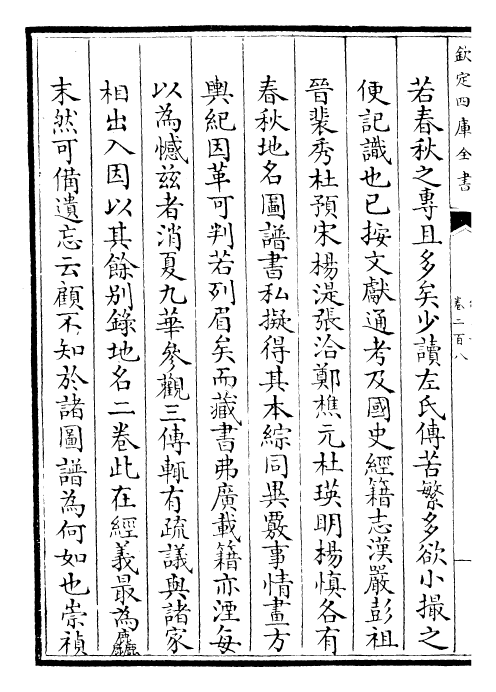 欽定四庫全書
卷二百八
若春秋之專且多矣少讀左氏傳苦繁多欲小撮之
便記識也已按文獻通考及國史經籍志漢嚴彭祖
晉裴秀杜預宋楊湜張洽鄭樵元杜瑛明楊慎各有
春秋地名圖譜書私擬得其本綜同異覈事情畫方
輿紀因革可判若列眉矣而藏書弗廣載籍亦湮每
以為憾兹者消夏九華參觀三傳輒有疏議與諸家
相出入因以其餘别錄地名二卷此在經義最為麤
末然可備遺忘云顧不知於諸圖譜為何如也崇禎